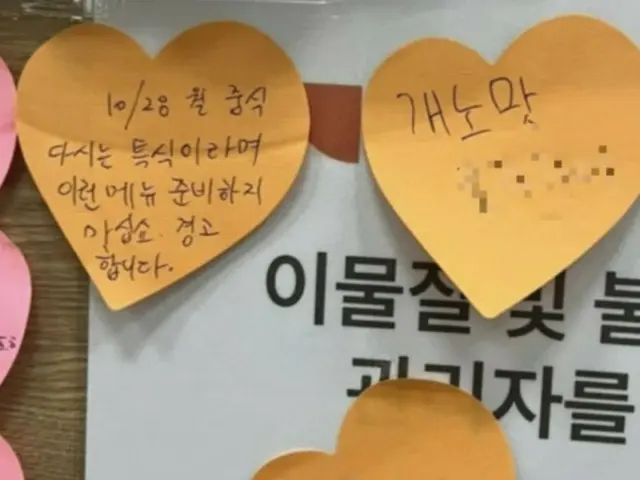 10/28 월 중식
다시는 특식이라며
이런 메뉴 준비하지
마십쇼. 경고
합니다.
개노맛
이물질 및 불
관리자를